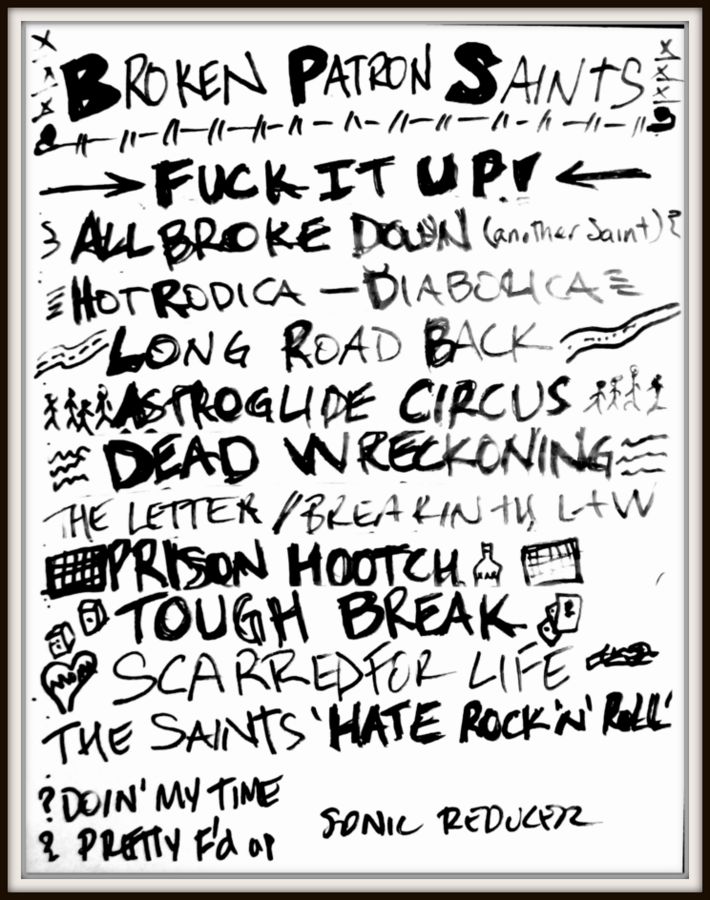 BROKEN PATRON SAINTS
FUCK IT UP!
ALL BROKE DOWN (another Saint)
HOTRODICA — DIABOLICA
LONG ROAD BACK
ASTROGLIDE CIRCUS
DEAD WRECKONING
THE LETTER / BREAKIN the LAW
PRISON HOOTCH
TOUGH BREAK
SCARRED FOR LIFE
THE SAINTS 'HATE ROCK 'N' ROLL'
? DOIN' MY TIME
? PRETTY F'd up
SONIC REDUCER